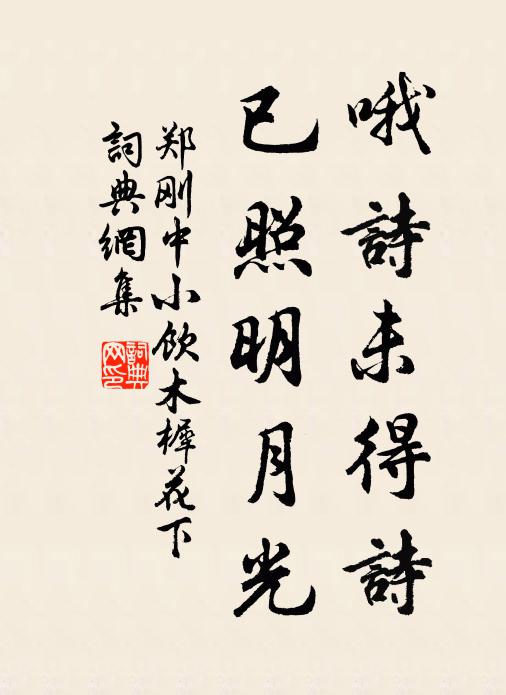 哦詩未得詩
已照明月光
郑刚中小饮木樨花下
詞典網集
詞典
网印